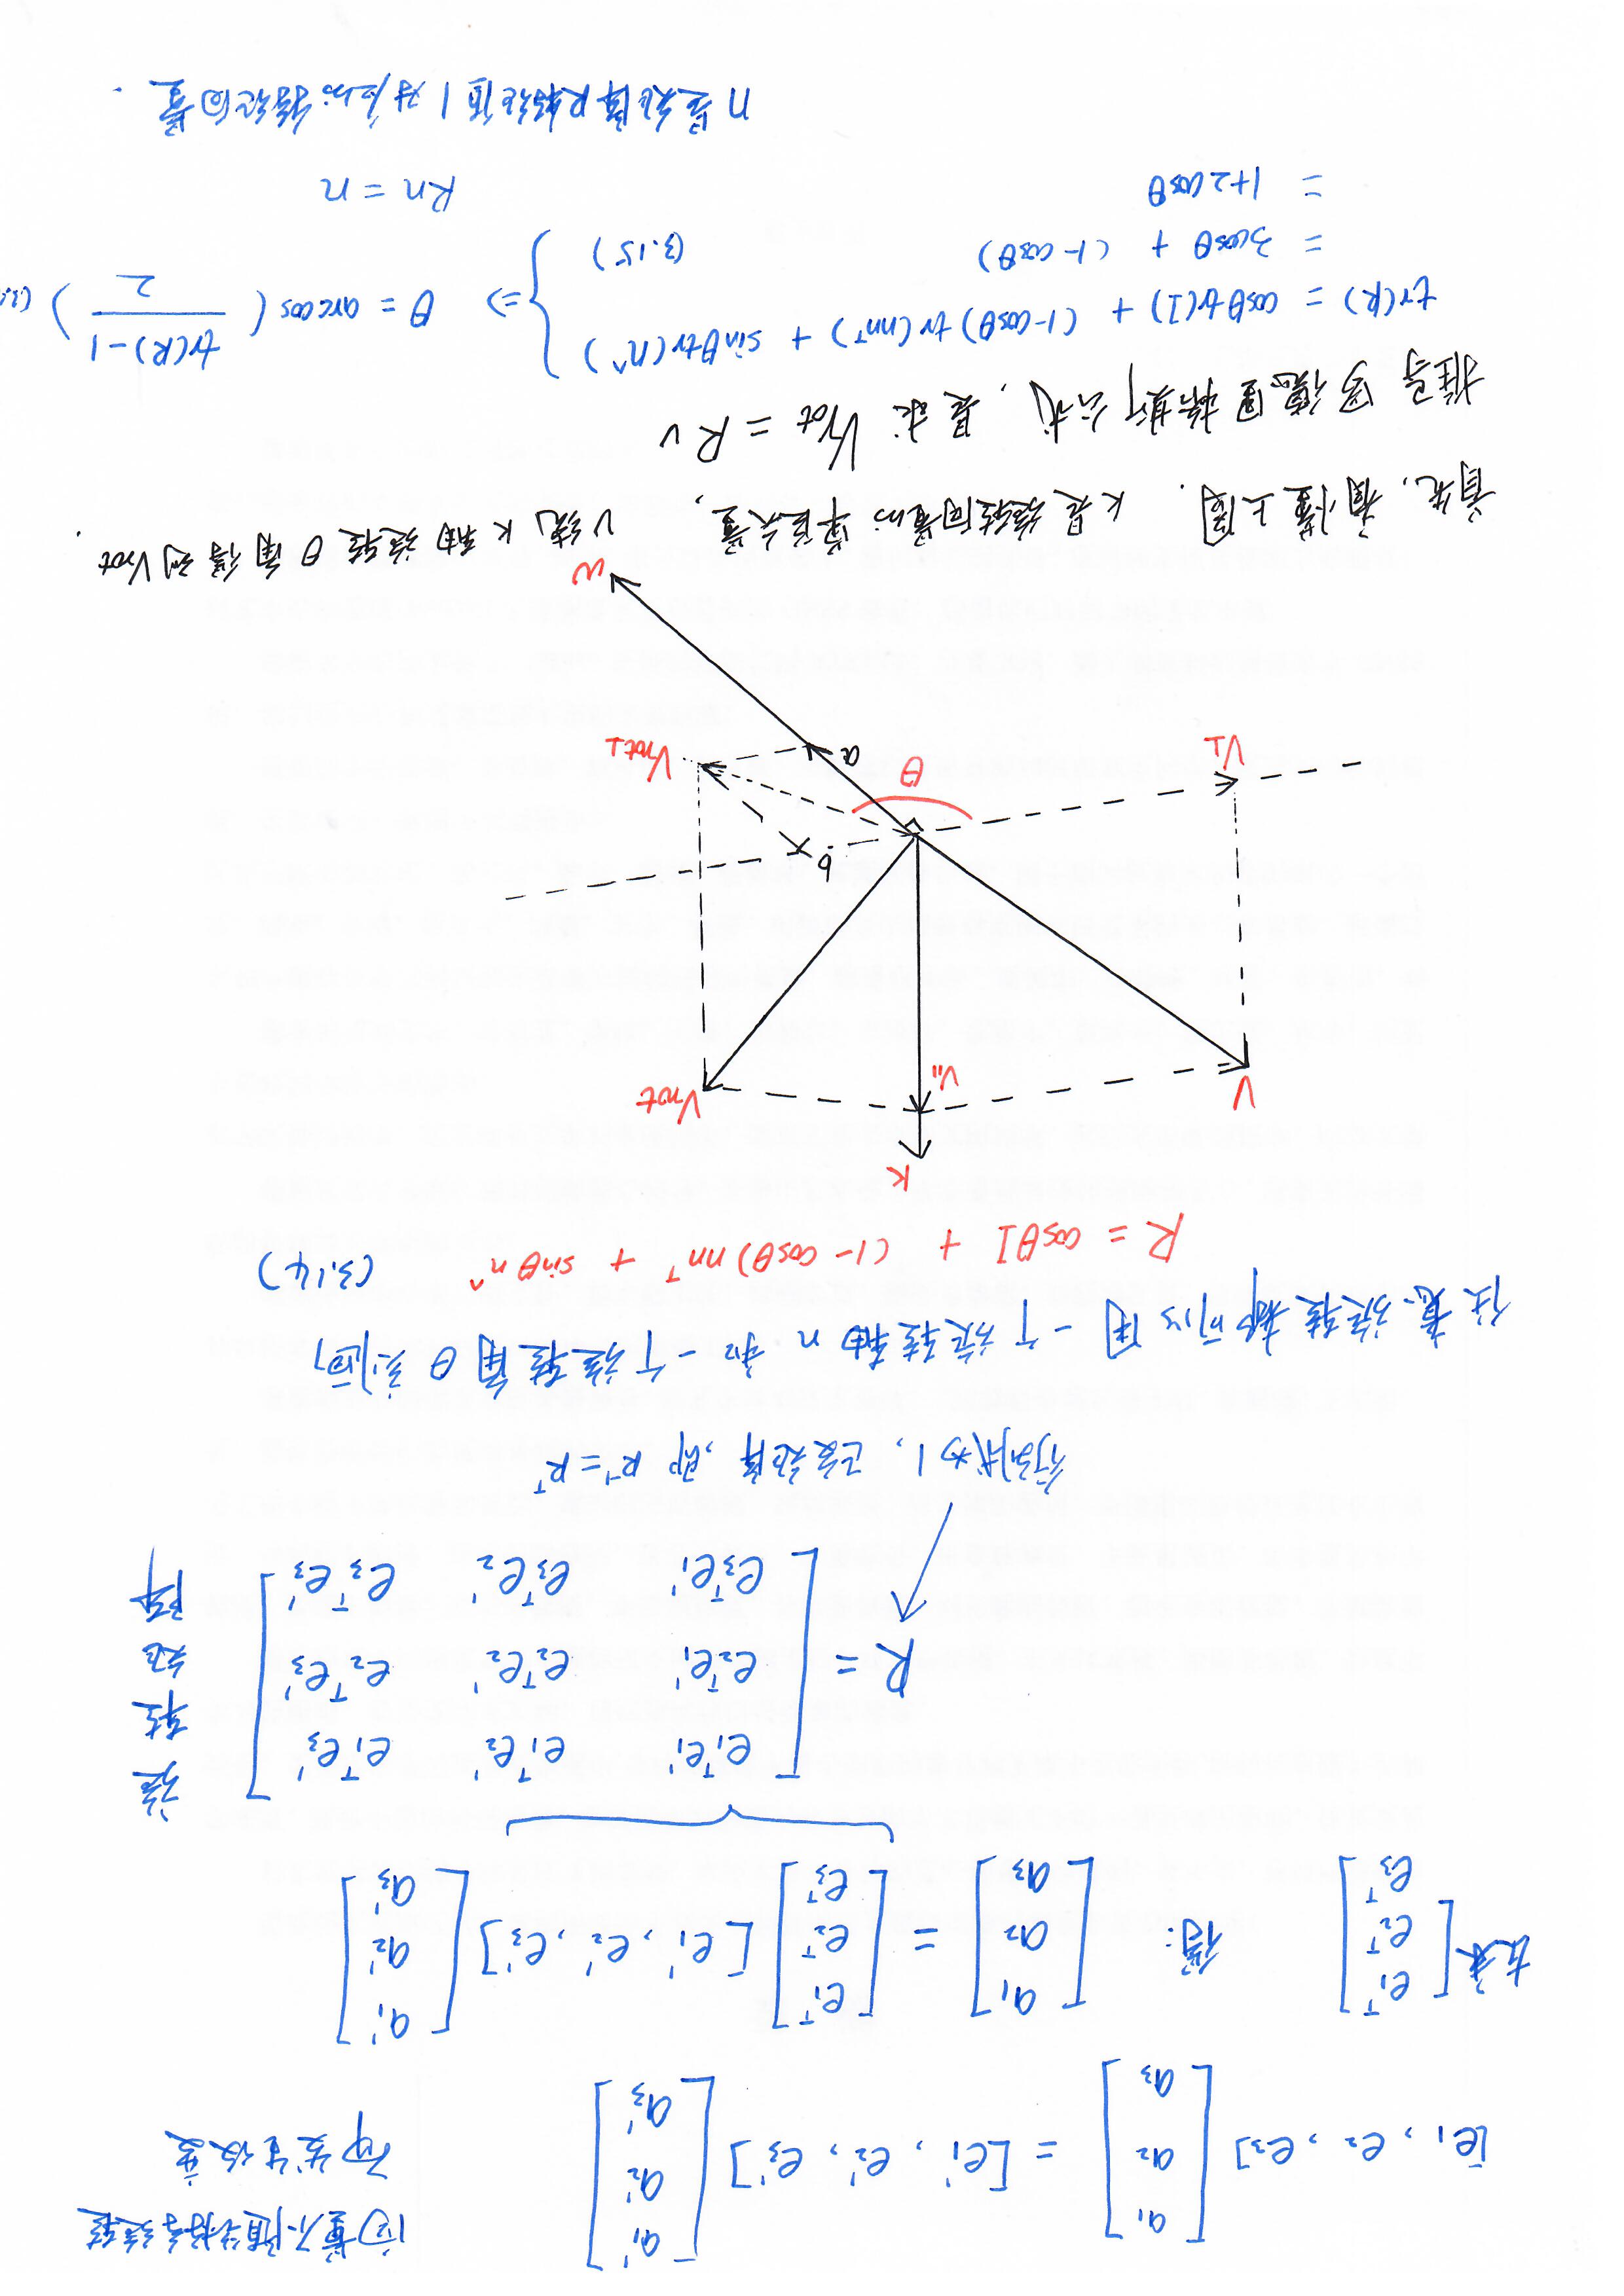 [e₁, e₂, e₃] [a₁ a₂ a₃] = [e₁', e₂', e₃'] [a₁' a₂' a₃'] 向量不随坐标系旋转
而发生改变
左乘 [e₁ᵀ e₂ᵀ e₃ᵀ] 得: [a₁ a₂ a₃] = [e₁ᵀ e₂ᵀ e₃ᵀ] [e₁', e₂', e₃'] [a₁' a₂' a₃']
R = [e₁ᵀe₁' e₁ᵀe₂' e₁ᵀe₃'
e₂ᵀe₁' e₂ᵀe₂' e₂ᵀe₃'
e₃ᵀe₁' e₃ᵀe₂' e₃ᵀe₃']
旋转矩阵
行列式为1, 正交矩阵, 即 R⁻¹ = Rᵀ
任意旋转都可以用一个旋转轴 n 和一个旋转角 θ 刻画
R = cosθI + (1-cosθ)nnᵀ + sinθ n^ (3.14)
K
V
V∥
Vrot
b
V⊥
θ
a
Vrot⊥
w
首先, 看懂上图. K是旋转向量的单位矢量, V绕K轴旋转θ角得到Vrot.
推导罗德里格斯公式, 是求 Vrot = R v
tr(R) = cosθtr(I) + (1-cosθ)tr(nnᵀ) + sinθtr(n^)
= 3cosθ + (1-cosθ) (3.15)
= 1+2cosθ
⇒ θ = arccos( (tr(R)-1)/2 )
Rn = n
n是矩阵R特征值1对应的特征向量.